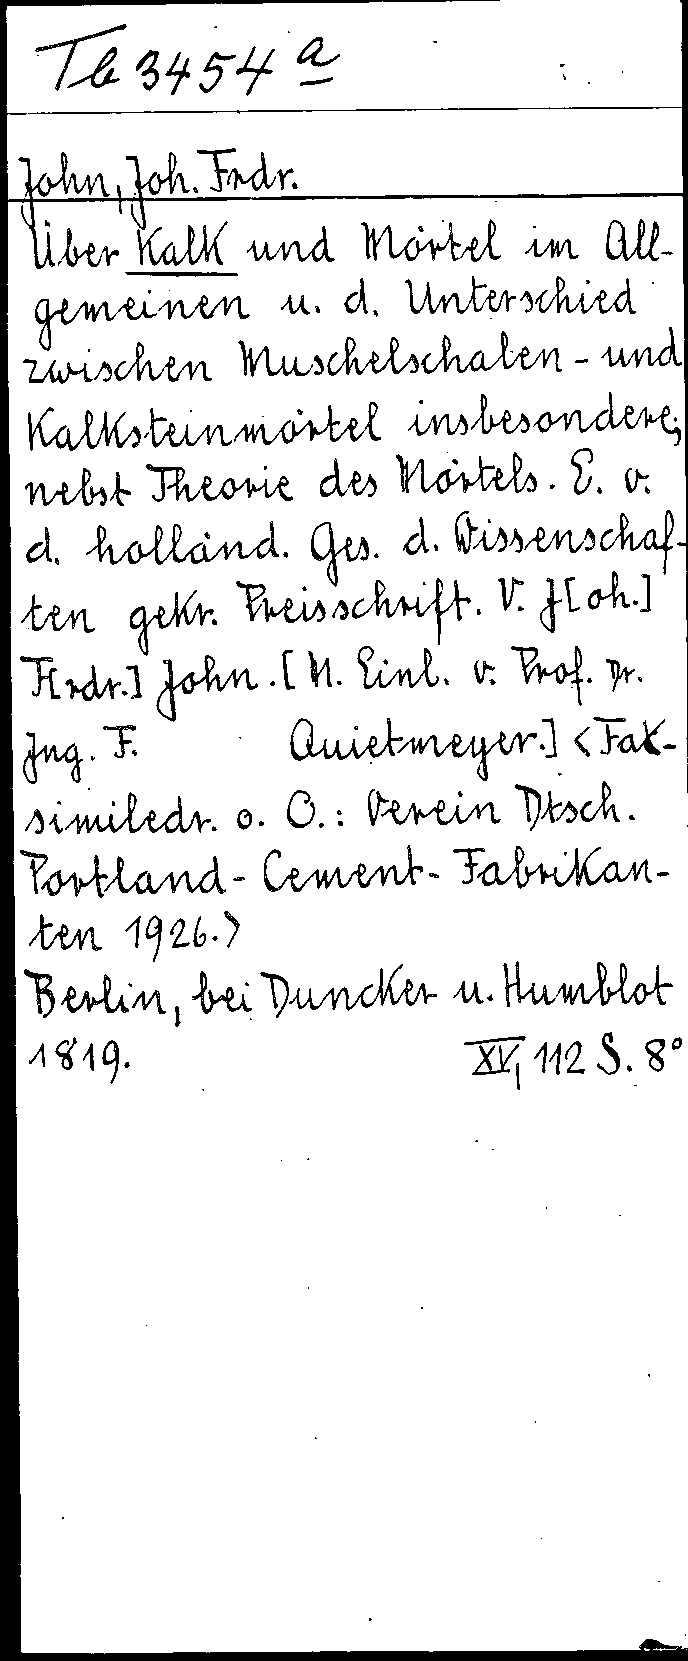 Tb 3454 a
John, Joh. Frdr.
Über Kalk und Mörtel im All-
gemeinen u. d. Unterschied
zwischen Muschelschalen- und
Kalksteinmörtel insbesondere;
nebst Theorie des Mörtels. E. v.
d. holländ. Ges. d. Wissenschaf-
ten gekr. Preisschrift. V. J[oh.]
F[rdr.] John. [M. Einl. v. Prof. Dr.
Ing. F. Quietmeyer.] <Fak-
similedr. o. O.: Verein Dtsch.
Portland-Cement-Fabrikan-
ten 1926.>
Berlin, bei Duncker u. Humblot
1819. XV, 112 S. 8°